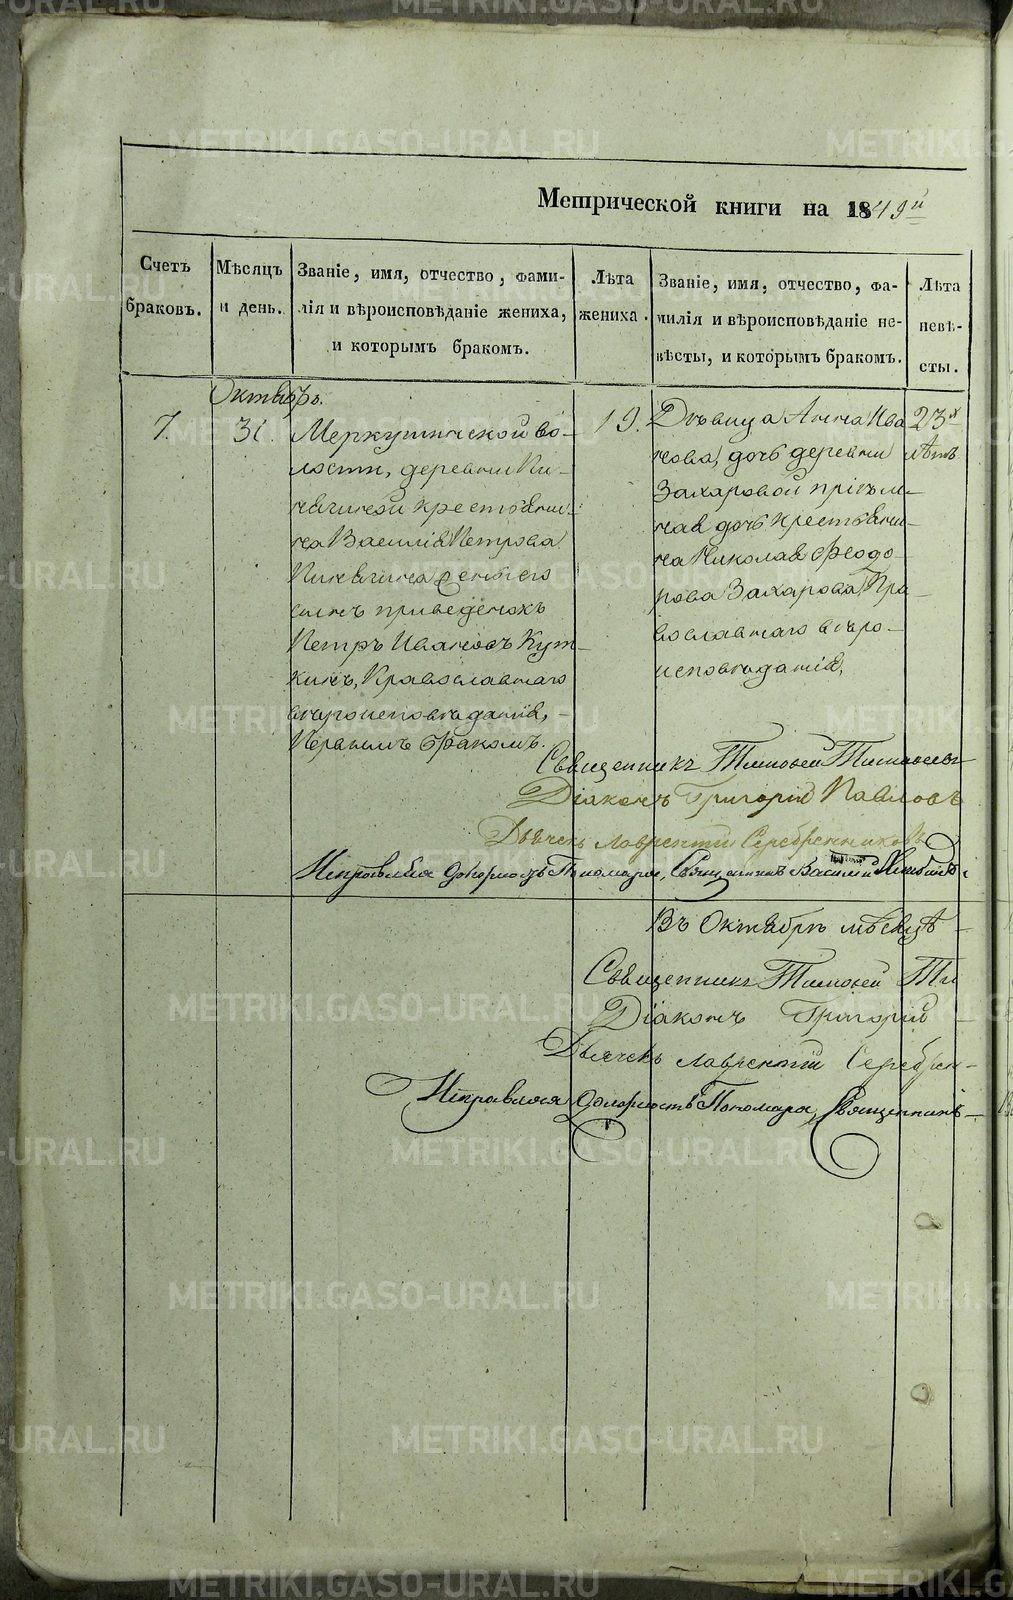 METRIKI.GASO-URAL.RU
Метрической книги на 1849й
Счетъ браковъ.
Мѣсяцъ и день.
Званіе, имя, отчество, фами-
лія и вѣроисповѣданіе жениха,
и которымъ бракомъ.
Лѣта жениха.
Званіе, имя, отчество, фа-
милія и вѣроисповѣданіе не-
вѣсты, и которымъ бракомъ.
Лѣта
невѣ-
сты.
Октябрь.
7.
31.
Меркушинской во-
лости, деревни Пи-
нягиной крестьяни-
на Василія Петрова
Пинягина
сынъ приведёнокъ
Петръ Ивановъ Кут-
кинъ, Православнаго
вѣроисповѣданія,
Первымъ бракомъ.
19.
Дѣвица Анна Ива
нова, дочь деревни
Захаровой пріем-
ная дочь крестьяни-
на Николая Феодо-
рова Захарова Пра-
вославнаго вѣро-
исповѣданія,
23х
лѣтъ
Священникъ Тимоѳей
Діаконъ Григорій Павловъ
Дьячекъ Лаврентій Серебренниковъ
Исправляя должность Пономаря, Священникъ Василій
Въ Октябрѣ мѣсяцѣ
Священникъ Тимоѳей Ти
Діаконъ Григорій
Дьячекъ Лаврентій Серебрен-
Исправляя должность Пономаря, Священникъ